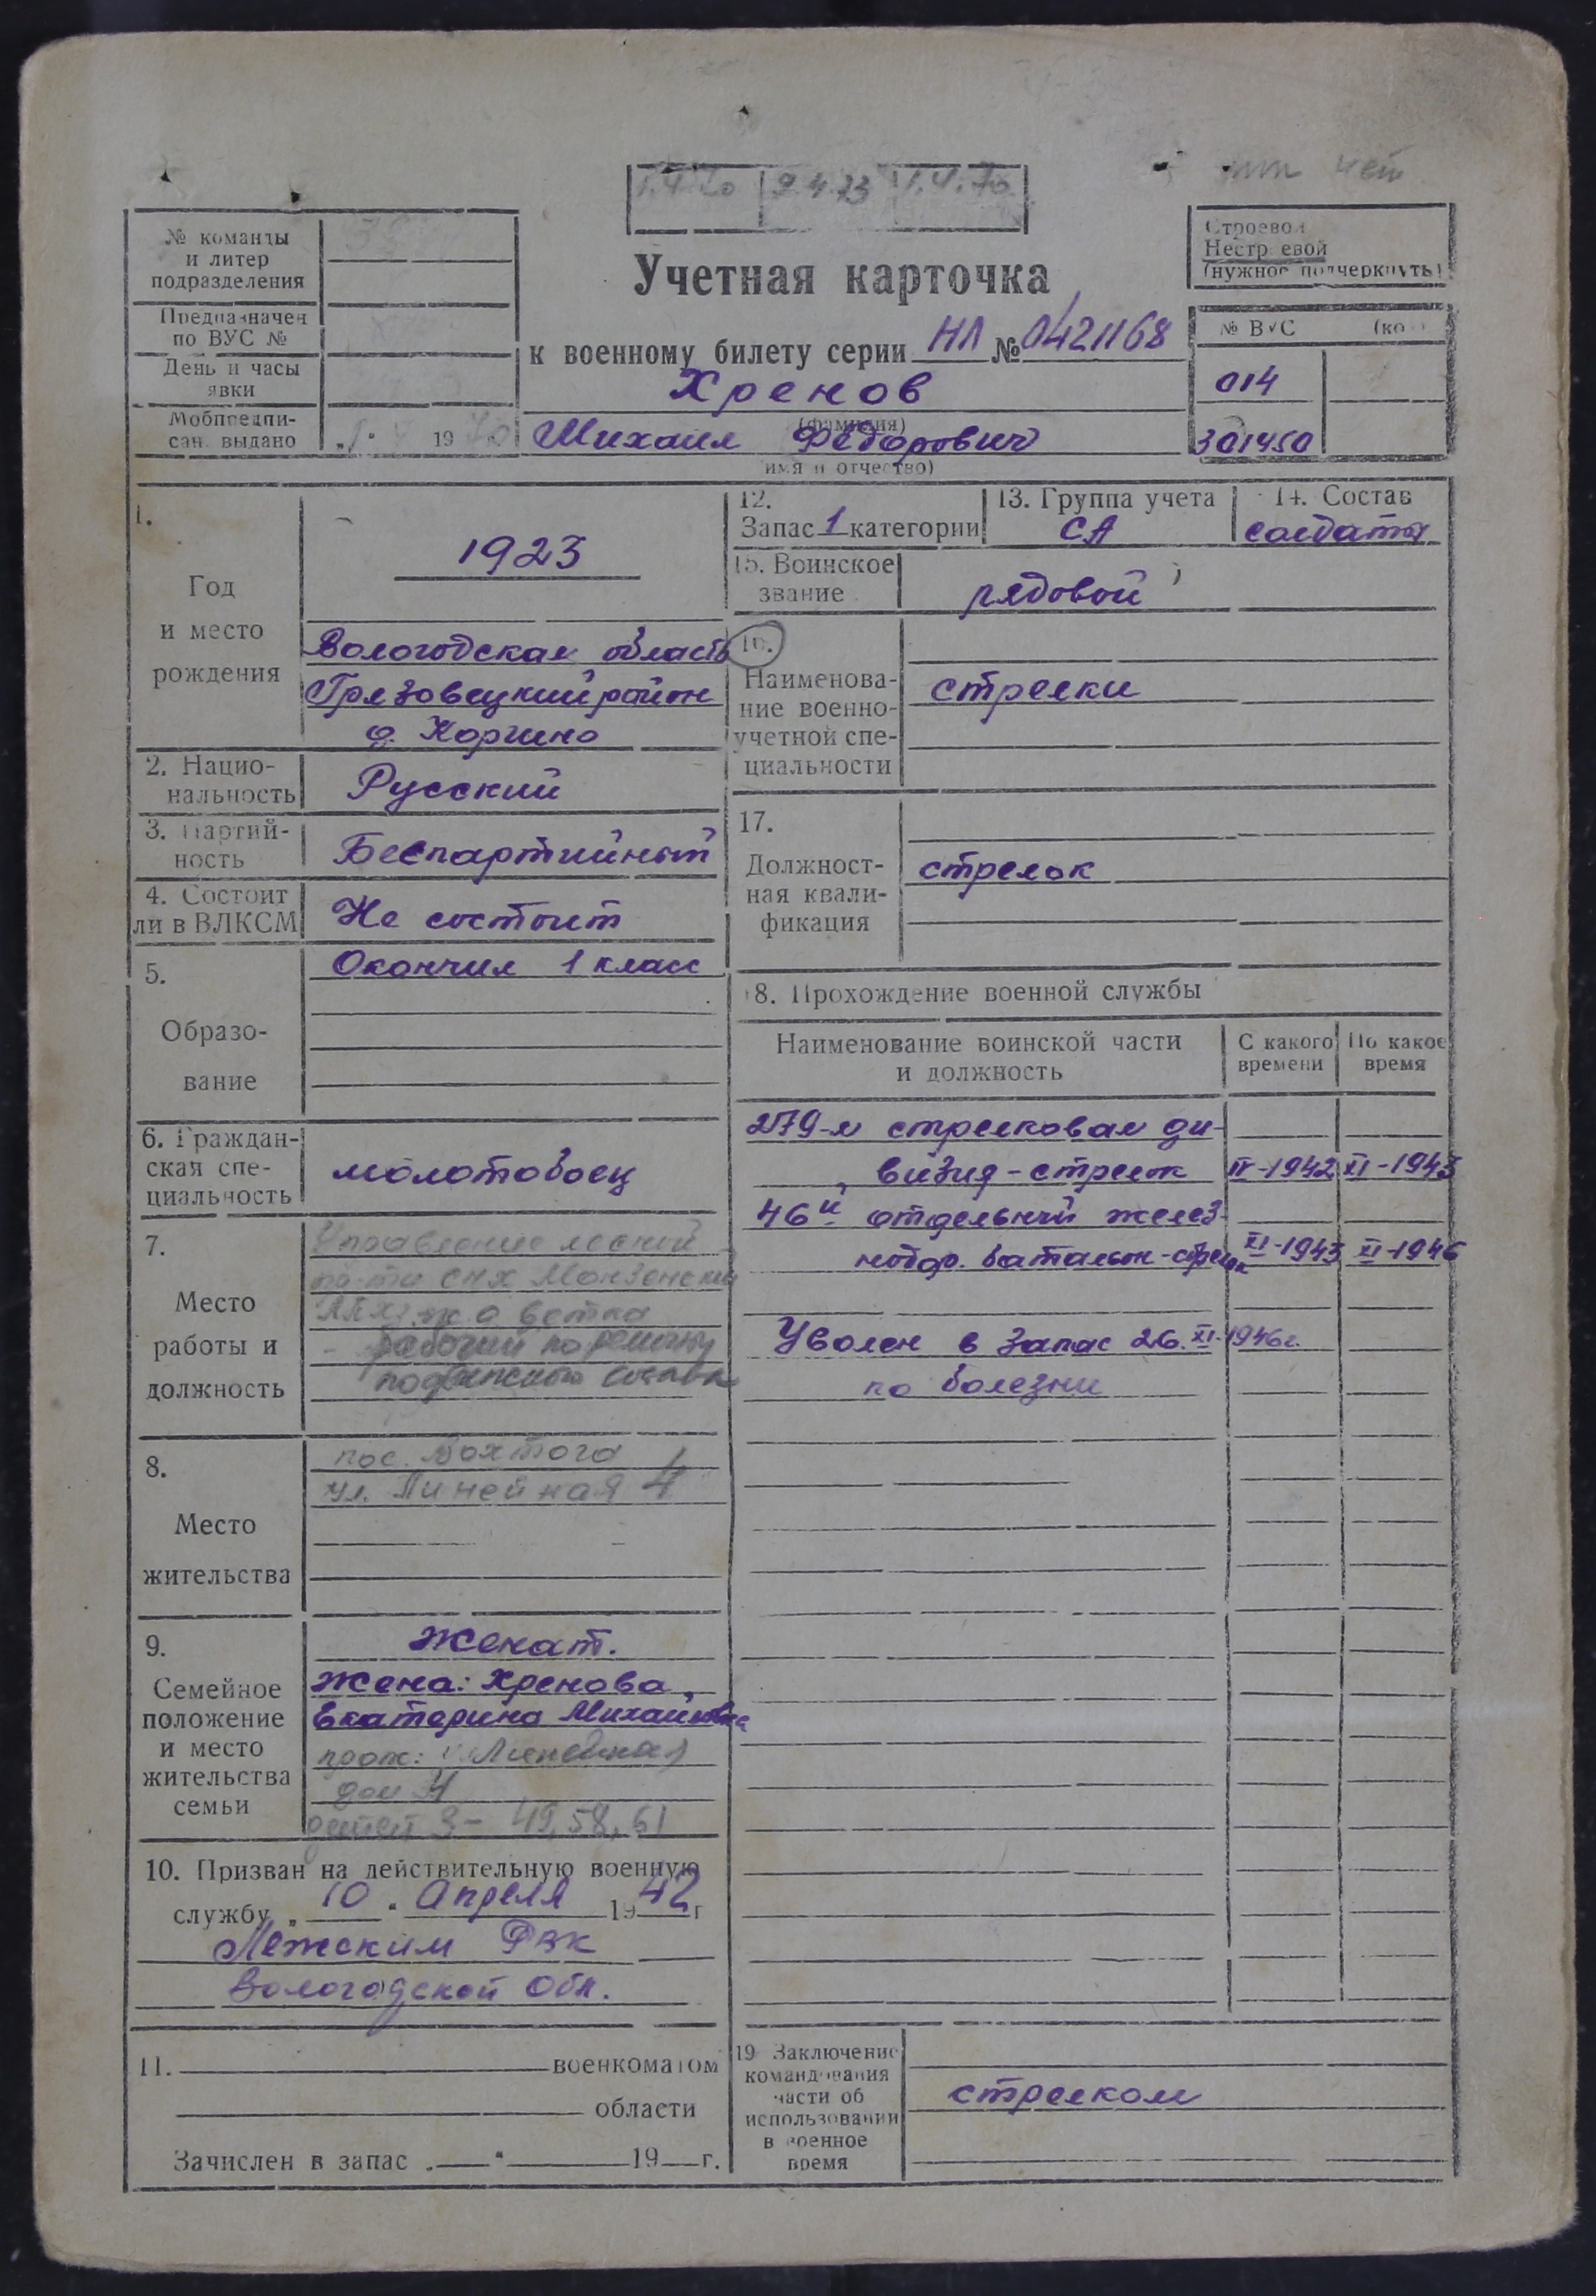 1.4.70 9.4.73 1.4.70
№ команды
и литер
подразделения
Предназначен
по ВУС №
День и часы
явки
Мобпредпи-
сан. выдано
19
Строевой
Нестроевой
(нужное подчеркнуть)
Учетная карточка
к военному билету серии НЛ № 0421168
Хренов
(фамилия)
Михаил Федорович
имя и отчество)
№ ВУС
014
301450
1.
Год
и место
рождения
1923
Вологодская область
Грязовецкий район
д. Коргино
2. Нацио-
нальность
Русский
3. Партий-
ность
Беспартийный
4. Состоит
ли в ВЛКСМ
Не состоит
5.
Образо-
вание
Окончил 1 класс
6. Граждан-
ская спе-
циальность
молотобоец
7.
Место
работы и
должность
Управление лесной
пр-ти СНХ Монзенский
ЛПХ ж.д ветка
- рабочий по ремонту
подвижного состава
8.
Место
жительства
пос. Вохтога
ул. Линейная 4
9.
Семейное
положение
и место
жительства
семьи
Женат.
Жена: Хренова
Екатерина Михайловна
прож: Линейная
дом 4
детей 3- 49, 58, 61
10. Призван на действительную военную
службу „ 10 " Апреля 1942 г
Лежским РВК
Вологодской обл.
11. военкоматом
области
Зачислен в запас „ " 19 г.
12.
Запас 1 категории
13. Группа учета
СА
14. Состав
солдаты
15. Воинское
звание
рядовой
16.
Наименова-
ние военно-
учетной спе-
циальности
стрелки
17.
Должност-
ная квали-
фикация
стрелок
18. Прохождение военной службы
Наименование воинской части
и должность
С какого
времени
По какое
время
279-я стрелковая ди-
визия - стрелок IV-1942 XI-1943
46й отдельный желез-
нодор. батальон - стрелок XI-1943 XI-1946
Уволен в запас 26.XI-1946г.
по болезни
19 Заключение
командования
части об
использовании
в военное
время
стрелком